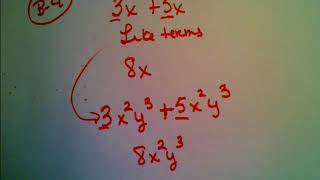 3x + 5x
Like terms
8x
3x²y³ + 5x²y³
8x²y³